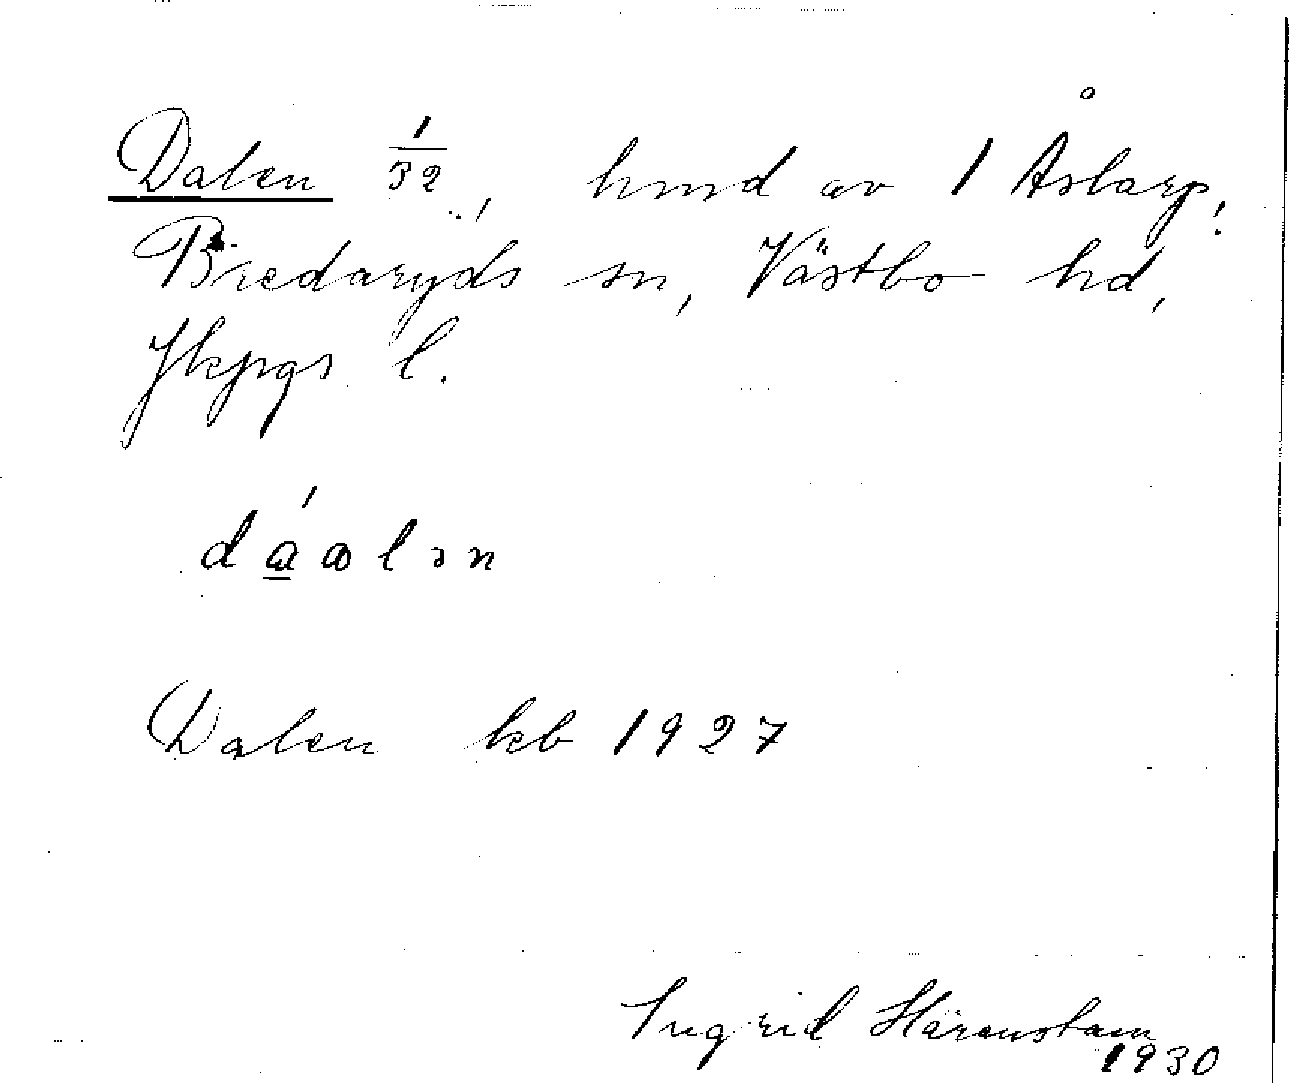 Dalen 1/32, hmd av 1 Åslarp,
Bredaryds sn, Västbo hd,
Jkpgs l.
dáalən
Dalen kb 1927
Ingrid Härenstam
1930